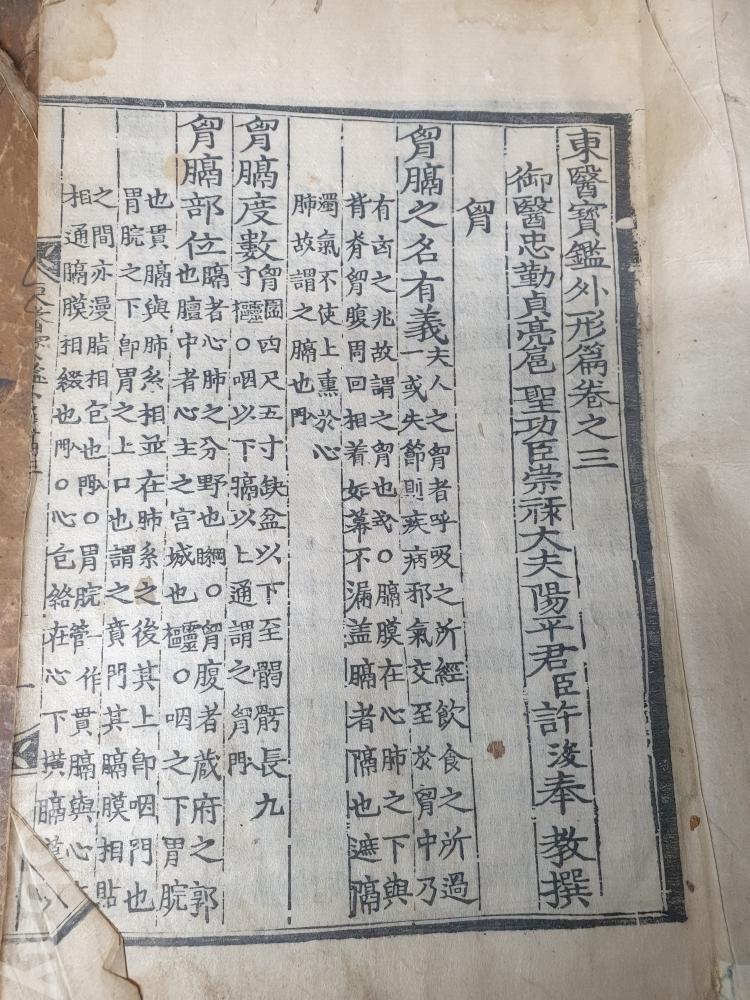 東醫寶鑑外形篇卷之三
御醫忠勤貞亮扈 聖功臣崇祿大夫陽平君臣許浚奉 敎撰
胷
胷膈之名有義
夫人之胷者呼吸之所經飮食之所過
一或失節則疾病邪氣交至於胷中乃
有凶之兆故謂之胷也 O膈膜在心肺之下與
背脊胷腹周回相着如幕不漏盖膈者隔也遮隔
濁氣不使上熏於心
肺故謂之膈也
胷膈度數
胷圍四尺五寸缺盆以下至𩩲骬長九
寸 O咽以下膈以上通謂之胷
胷膈部位
膈者心肺之分野也 O胷腹者蔵府之郭
也膻中者心主之宮城也 O咽之下胃脘
也貫膈與肺系相並在肺系之後其上卽咽門也
胃脘之下卽胃之上口也謂之賁門其膈膜相貼
之間亦漫脂相包也 O胃脘管一作貫膈與心
相通膈膜相綴也 O心包絡在心下橫膈